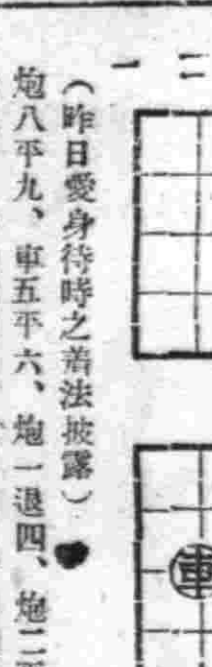 二
一
車
（昨日愛身待時之着法披露）
炮八平九、車五平六、炮一退四、炮二